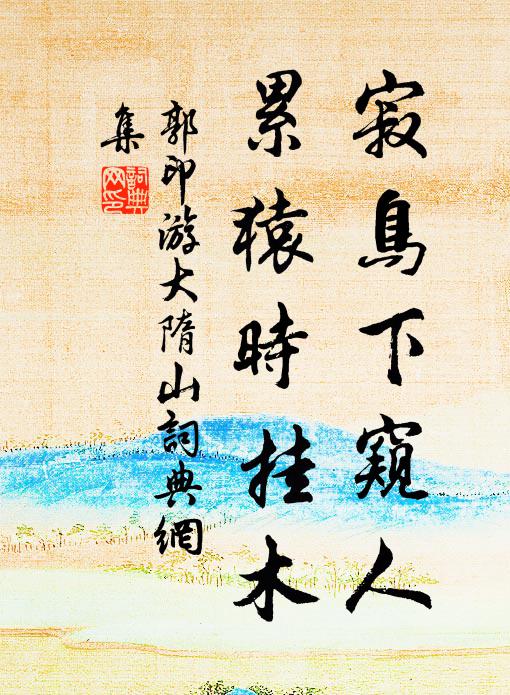 寂鳥下窺人
累猿時挂木
郭印游大隋山詞典網
集
詞典網印